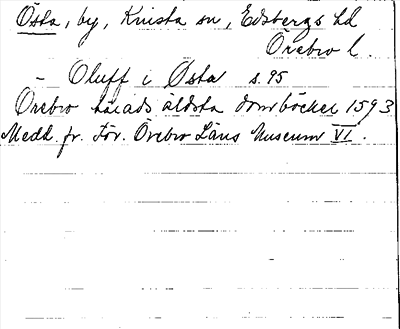 Östa, by, Knista sn, Edsbergs hd
Örebro l.
- Oluff i Østa s. 95
Örebro härads äldsta domböcker 1593
Medd. fr. För. Örebro Läns Museum VI.